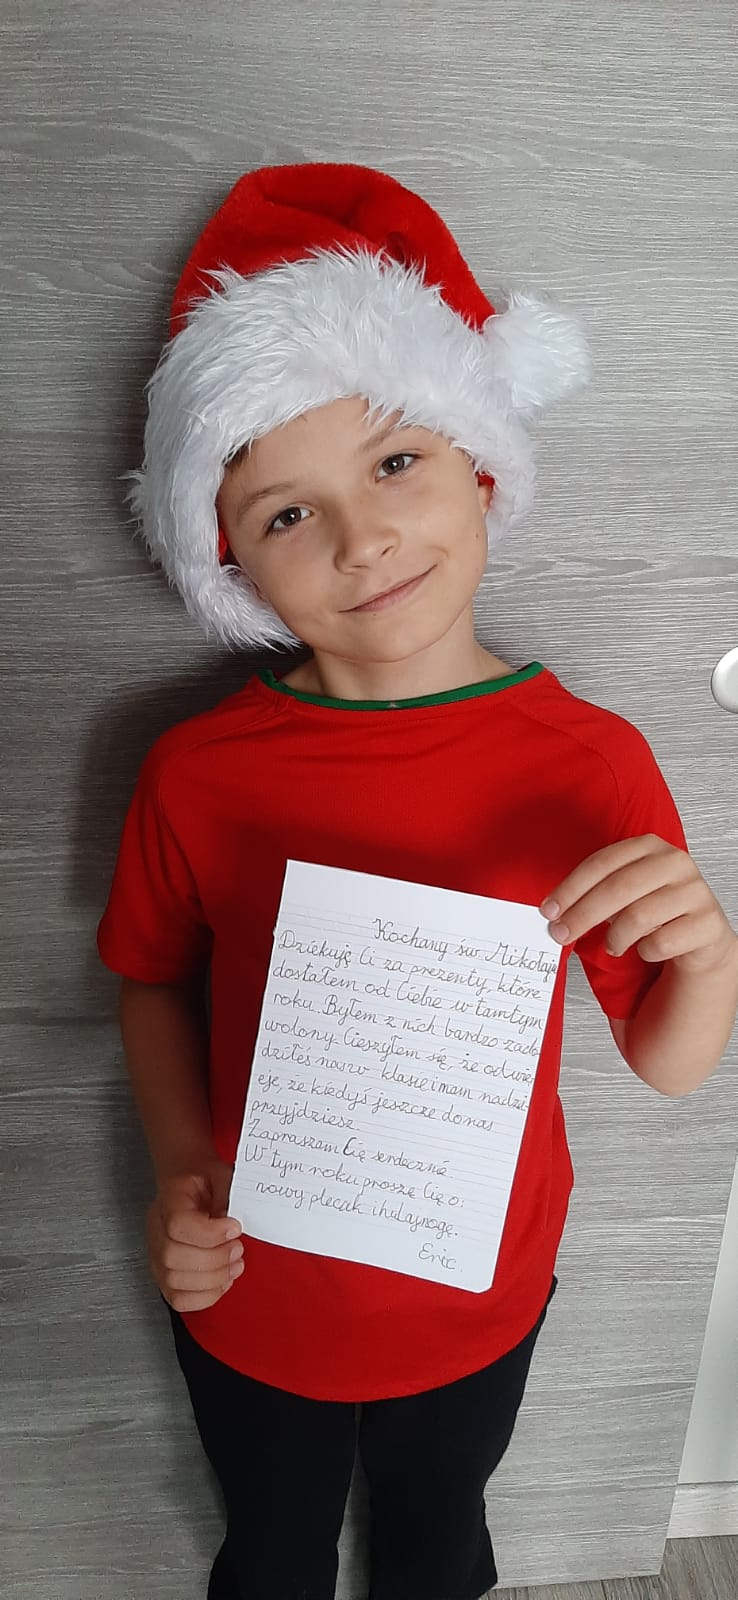 Kochany św. Mikołaju
Dziękuję Ci za prezenty, które
dostałem od Ciebie w tamtym
roku. Byłem z nich bardzo zado
wolony. Cieszyłem się, że odwie
dziłeś naszo klasię i mam nadzi-
eje, że kiedyś jeszcze do nas
przyjdziesz.
Zapraszam Cię serdecznie
W tym roku proszę Cię o:
nowy plecak i hulajnogę.
Eric.